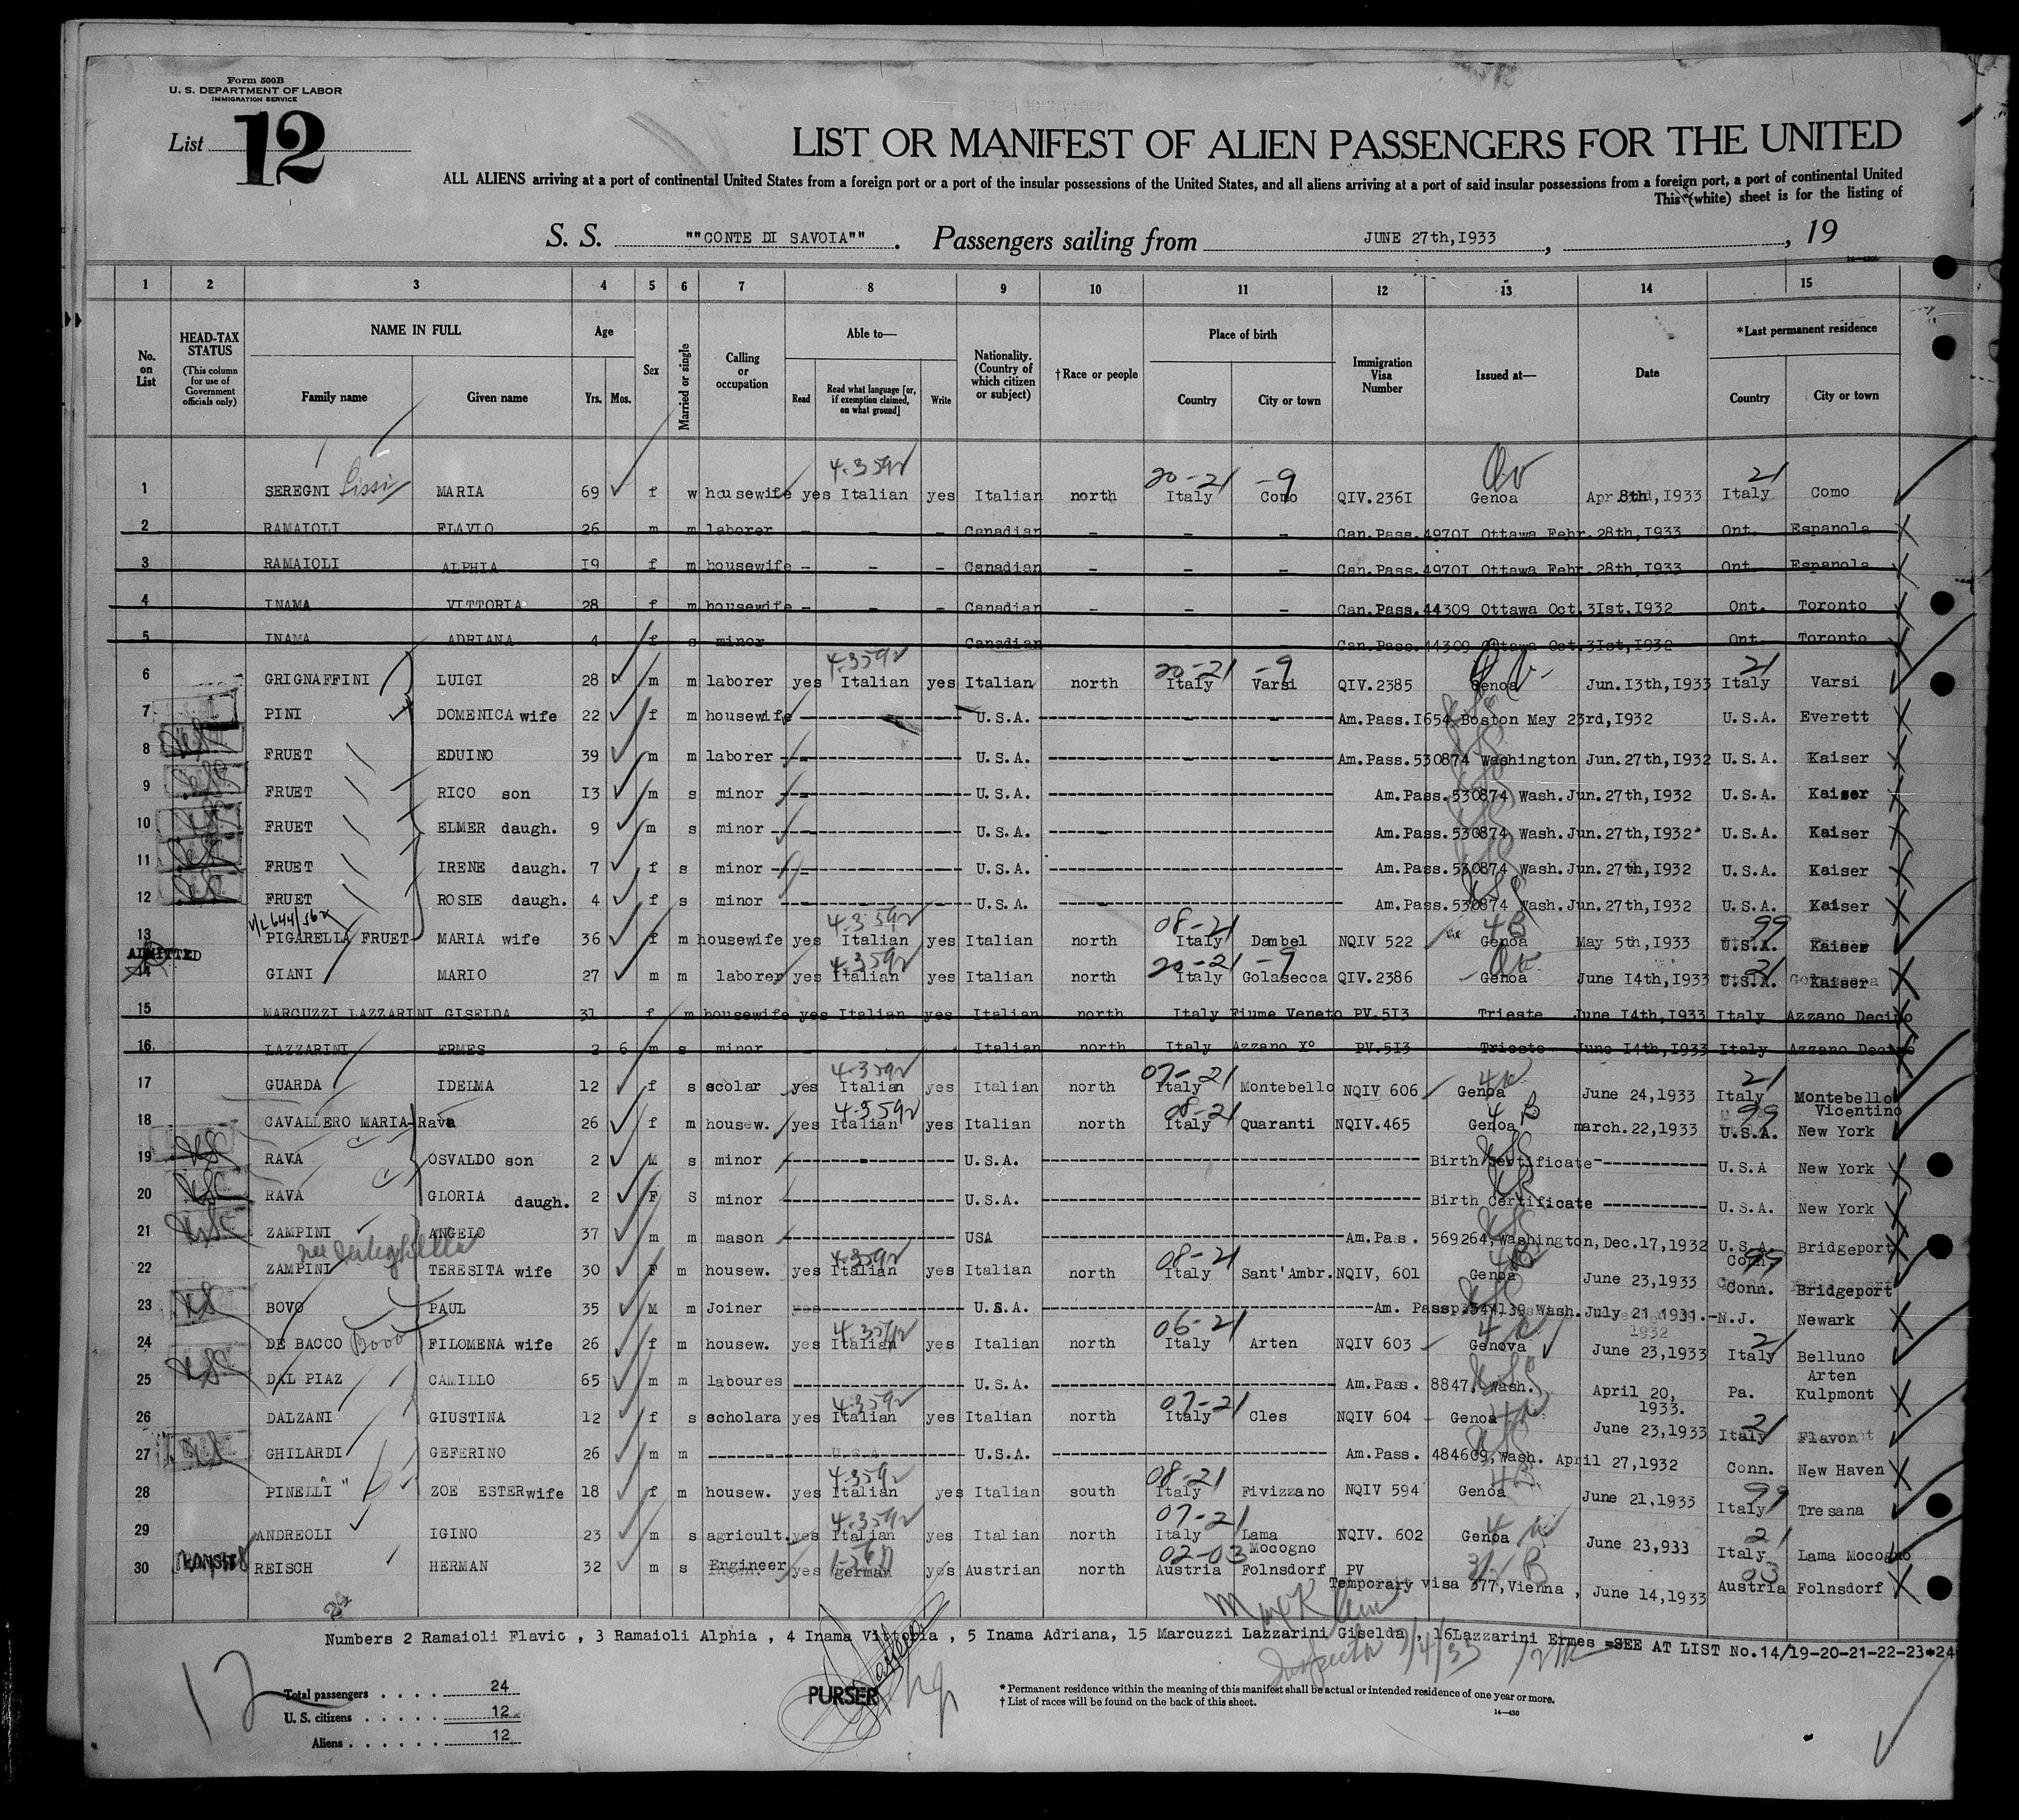 Form 500B
U. S. DEPARTMENT OF LABOR
IMMIGRATION SERVICE
List 12
LIST OR MANIFEST OF ALIEN PASSENGERS FOR THE UNITED
ALL ALIENS arriving at a port of continental United States from a foreign port or a port of the insular possessions of the United States, and all aliens arriving at a port of said insular possessions from a foreign port, a port of continental United
This (white) sheet is for the listing of
S. S. ""CONTE DI SAVOIA"" . Passengers sailing from JUNE 27th,I933 , , 19
14—430
1 2 3 4 5 6 7 8 9 10 11 12 13 14 15
No. on List
HEAD-TAX STATUS (This column for use of Government officials only)
NAME IN FULL Family name Given name
Age Yrs. Mos.
Sex
Married or single
Calling or occupation
Able to— Read Read what language [or, if exemption claimed, on what ground] Write
Nationality. (Country of which citizen or subject)
†Race or people
Place of birth Country City or town
Immigration Visa Number
Issued at—
Date
*Last permanent residence Country City or town
1 SEREGNI MARIA 69 f w housewife yes Italian 4-3592 yes Italian north 20-21 Italy -9 Como QIV.236I Genoa Apr 8th,I933 21 Italy Como
2 RAMAIOLI FLAVIO 26 m m laborer - - - Canadian - - - Can.Pass.4970I Ottawa Febr.28th,I933 Ont. Espanola
3 RAMAIOLI ALPHIA I9 f m housewife - - - Canadian - - - Can.Pass.4970I Ottawa Febr.28th,I933 Ont. Espanola
4 INAMA VITTORIA 28 f m housewife - - - Canadian - - - Can.Pass.44309 Ottawa Oct.3Ist,I932 Ont. Toronto
5 INAMA ADRIANA 4 f s minor Canadian Can.Pass.44309 Ottawa Oct.3Ist,I932 Ont. Toronto
6 GRIGNAFFINI LUIGI 28 m m laborer yes Italian 4-3592 yes Italian north 20-21 Italy -9 Varsi QIV.2385 Genoa Jun.I3th,I933 21 Italy Varsi
7 PINI DOMENICA wife 22 f m housewife U.S.A. Am.Pass.I654 Boston May 23rd,I932 U.S.A. Everett
8 FRUET EDUINO 39 m m laborer U.S.A. Am.Pass.530874 Washington Jun.27th,I932 U.S.A. Kaiser
9 FRUET RICO son I3 m s minor U.S.A. Am.Pass.530874 Wash.Jun.27th,I932 U.S.A. Kaiser
10 FRUET ELMER daugh. 9 m s minor U.S.A. Am.Pass.530874 Wash.Jun.27th,I932 U.S.A. Kaiser
11 FRUET IRENE daugh. 7 f s minor U.S.A. Am.Pass.530874 Wash.Jun.27th,I932 U.S.A. Kaiser
12 FRUET ROSIE daugh. 4 f s minor U.S.A. Am.Pass.530874 Wash.Jun.27th,I932 U.S.A. Kaiser
13 PIGARELLA FRUET MARIA wife 36 f m housewife yes Italian 4-3592 yes Italian north 08-21 Italy Dambel NQIV 522 4B Genoa May 5th,I933 99 U.S.A. Kaiser
ADMITTED
14 GIANI MARIO 27 m m laborer yes Italian 4-3592 yes Italian north 20-21 Italy -9 Golasecca QIV.2386 Genoa June I4th,I933 21 U.S.A. Kaiser
15 MARCUZZI LAZZARINI GISELDA 31 f m housewife yes Italian yes Italian north Italy Fiume Veneto PV.5I3 Trieste June I4th,I933 Italy Azzano Decimo
16 LAZZARINI ERMES 2 6 m s minor Italian north Italy Azzano X° PV.5I3 Trieste June I4th,I933 Italy Azzano Decimo
17 GUARDA IDELMA 12 f s scolar yes Italian 4-3592 yes Italian north 07-21 Italy Montebello NQIV 606 Genoa June 24,1933 21 Italy Montebello Vicentino
18 CAVALLERO MARIA-Rava 26 f m housew. yes Italian 4-3592 yes Italian north 08-21 Italy Quaranti NQIV.465 4B Genoa march.22,1933 99 U.S.A. New York
19 RAVA OSVALDO son 2 M s minor U.S.A. Birth Certificate U.S.A New York
20 RAVA GLORIA daugh. 2 F S minor U.S.A. Birth Certificate U.S.A. New York
21 ZAMPINI ANGELO 37 m m mason USA Am.Pas. 569264,Washington,Dec.17,1932 U.S.A. Conn. Bridgeport
22 ZAMPINI TERESITA wife 30 F m housew. yes Italian 4-3592 yes Italian north 08-21 Italy Sant'Ambr. NQIV, 601 4B Genoa June 23,1933 99 Conn. Bridgeport
23 BOVO PAUL 35 M m Joiner U.S.A. Am. Passp.544139 Wash.July 21 1931. 1932 N.J. Newark
24 DE BACCO Bovo FILOMENA wife 26 f m housew. yes Italian 4-3592 yes Italian north 06-21 Italy Arten NQIV 603 Genova June 23,1933 21 Italy Belluno Arten
25 DAL PIAZ CAMILLO 65 m m laboures U.S.A. Am.Pass. 8847, Wash. April 20, 1933. Pa. Kulpmont
26 DALZANI GIUSTINA 12 f s scholara yes Italian 4-3592 yes Italian north 07-21 Italy Cles NQIV 604 Genoa June 23,1933 21 Italy Flavon
27 GHILARDI GEFERINO 26 m m U.S.A. U.S.A. Am.Pass. 484609,Wash. April 27,1932 Conn. New Haven
28 PINELLI " ZOE ESTER wife 18 f m housew. yes Italian 4-3592 yes Italian south 08-21 Italy Fivizzano NQIV 594 4B Genoa June 21,1933 99 Italy Tresana
29 ANDREOLI IGINO 23 m s agricult. yes Italian 4-3592 yes Italian north 07-21 Italy Lama Mocogno NQIV. 602 Genoa June 23,933 21 Italy Lama Mocogno
30 REISCH HERMAN 32 m s Engineer yes german yes Austrian north 02-03 Austria Folnsdorf PV Temporary visa 377,Vienna , June 14,1933 03 Austria Folnsdorf
Numbers 2 Ramaioli Flavio , 3 Ramaioli Alphia , 4 Inama Vittoria , 5 Inama Adriana, 15 Marcuzzi Lazzarini Giselda , 16Lazzarini Ermes =SEE AT LIST No.14/19-20-21-22-23*24
Inspector 7/4/33
12
Total passengers . . . . 24
U. S. citizens . . . . . 12
Aliens . . . . . . 12
PURSER
* Permanent residence within the meaning of this manifest shall be actual or intended residence of one year or more.
† List of races will be found on the back of this sheet.
14—430